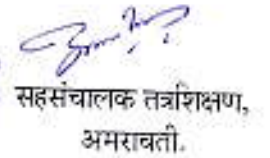 सहसंचालक तत्रशिक्षण,
अमरावती.